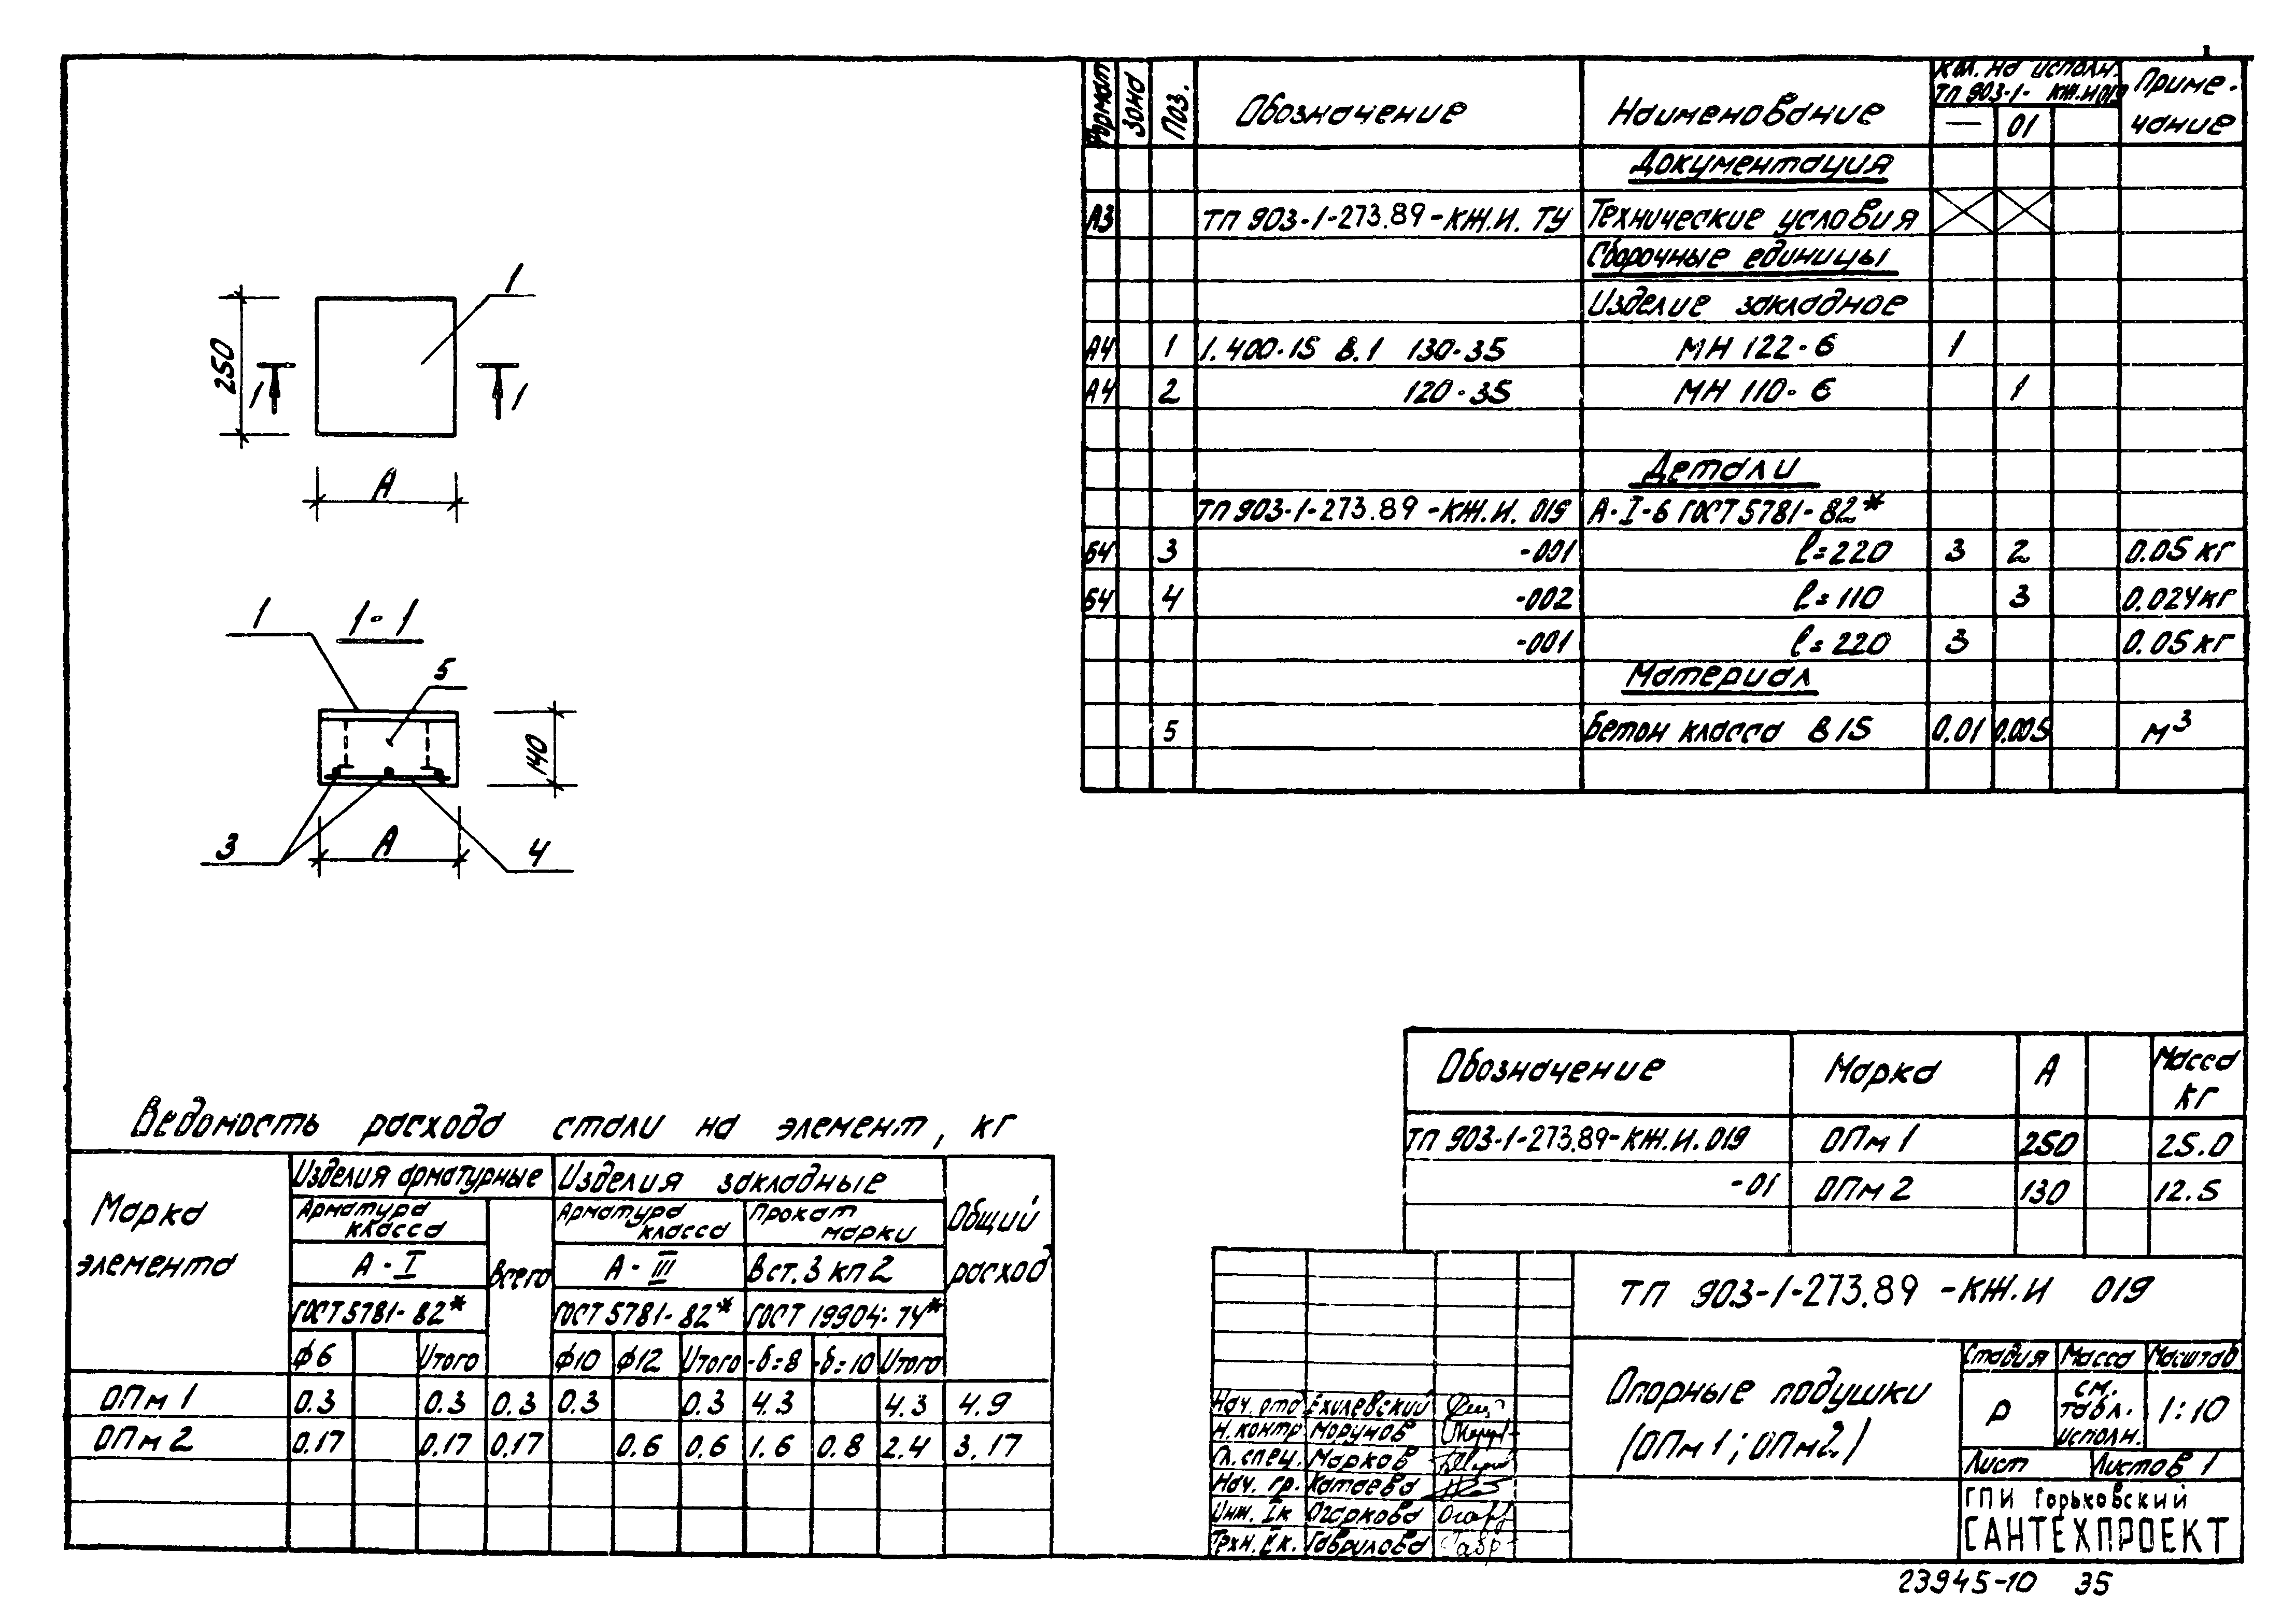 Формат Зона Поз. Обозначение Наименование Кол. на исполн. ТП 903-1- КЖ.И 019 Приме-чание
— 01
Документация
А3 ТП 903-1-273.89-КЖ.И. ТУ Технические условия
Сборочные единицы
Изделие закладное
А4 1 1.400-15 В.1 130-35 МН 122-6 1
А4 2 120-35 МН 110-6 1
Детали
ТП 903-1-273.89-КЖ.И. 019 А-I-6 ГОСТ 5781-82*
Б4 3 -001 ℓ=220 3 2 0.05 кг
Б4 4 -002 ℓ=110 3 0.024кг
-001 ℓ=220 3 0.05 кг
Материал
5 Бетон класса В15 0.01 0.005 м³
1
250
1 1
А
1-1
1
5
140
3 А 4
Обозначение Марка А Масса кг
ТП 903-1-273.89-КЖ.И.019 ОПм 1 250 25.0
-01 ОПм 2 130 12.5
Ведомость расхода стали на элемент, кг
Марка элемента Изделия арматурные Изделия закладные Общий расход
Арматура класса Всего Арматура класса Прокат марки
А-I А-III Вст.3 кп2
ГОСТ 5781-82* ГОСТ 5781-82* ГОСТ 19904-74*
ϕ6 Итого ϕ10 ϕ12 Итого -δ=8 -δ=10 Итого
ОПм 1 0.3 0.3 0.3 0.3 0.3 4.3 4.3 4.9
ОПм 2 0.17 0.17 0.17 0.6 0.6 1.6 0.8 2.4 3.17
ТП 903-1-273.89-КЖ.И 019
Опорные подушки
(ОПм1; ОПм2)
Стадия Масса Масштаб
Р см. табл. исполн. 1:10
Лист Листов 1
ГПИ Горьковский
САНТЕХПРОЕКТ
Нач. отд Ехилевский
Н.контр Морунов
Гл. спец. Марков
Нач. гр. Катаева
Инж. Iк Огаркова
Техн. IIк. Гаврилова
23945-10 35